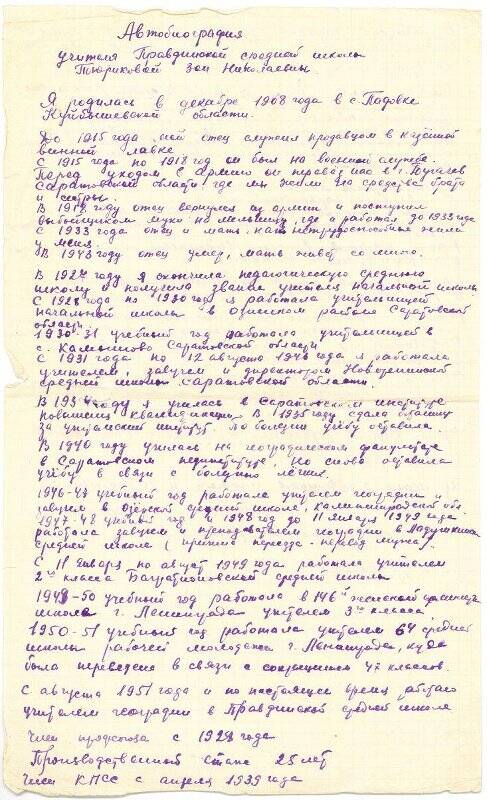 Автобиография
учителя Правдинской средней школы
Тюриковой Зои Николаевны.
Я родилась в декабре 1908 года в с. Падовке
Куйбышевской области.
До 1915 года мой отец служил продавцом в казённой
винной лавке
С 1915 года по 1918 год он был на военной службе.
Перед уходом в армию он перевёз нас в г. Пугачев
Саратовской области где мы жили на средства брата
и сестры.
В 1918 году отец вернулся из армии и поступил
выбойщиком муки на мельницу, где и работал до 1933 года
С 1933 года отец и мать, как нетрудоспособные жили
у меня.
В 1943 году отец умер, мать живёт со мною.
В 1927 году я окончила педагогическую среднюю
школу и получила звание учителя начальной школы
С 1928 года по 1930 год я работала учительницей
начальной школы в районе Саратовской
области.
1930-31 учебный год работала учительницей в
с. Камышово Саратовской области
С 1931 года по 12 августа 1946 года я работала
учителем, завучем и директором
средней школы Саратовской области.
В 1934 году я училась в Саратовском институте
повышения квалификации. В 1935 году сдала экзамены
за учительский институт, по болезни учёбу оставила.
В 1940 году училась на географическом факультете
в Саратовском пединституте, но снова оставила
учёбу в связи с болезнью лёгких.
1946-47 учебный год работала учителем географии и
завучем в Озёрской средней школе, Калининградской обл.
1947-48 учебный год и 1948 год до 11 января 1949 года
работала завучем и преподавателем географии в
средней школе (причина переезда - перевод мужа).
С 11 января по август 1949 года работала учителем
2го класса Багратионовской средней школы
1949-50 учебный год работала в 146й женской
школе г. Ленинграда учителем 3го класса
1950-51 учебный год работала учителем 64 средней
школы рабочей молодежи г. Ленинграда, куда
была переведена в связи с сокращением 4х классов.
С августа 1951 года и по настоящее время работаю
учителем географии в Правдинской средней школе
Член профсоюза с 1928 года
Производственный стаж 25 лет
Член КПСС с апреля 1939 года